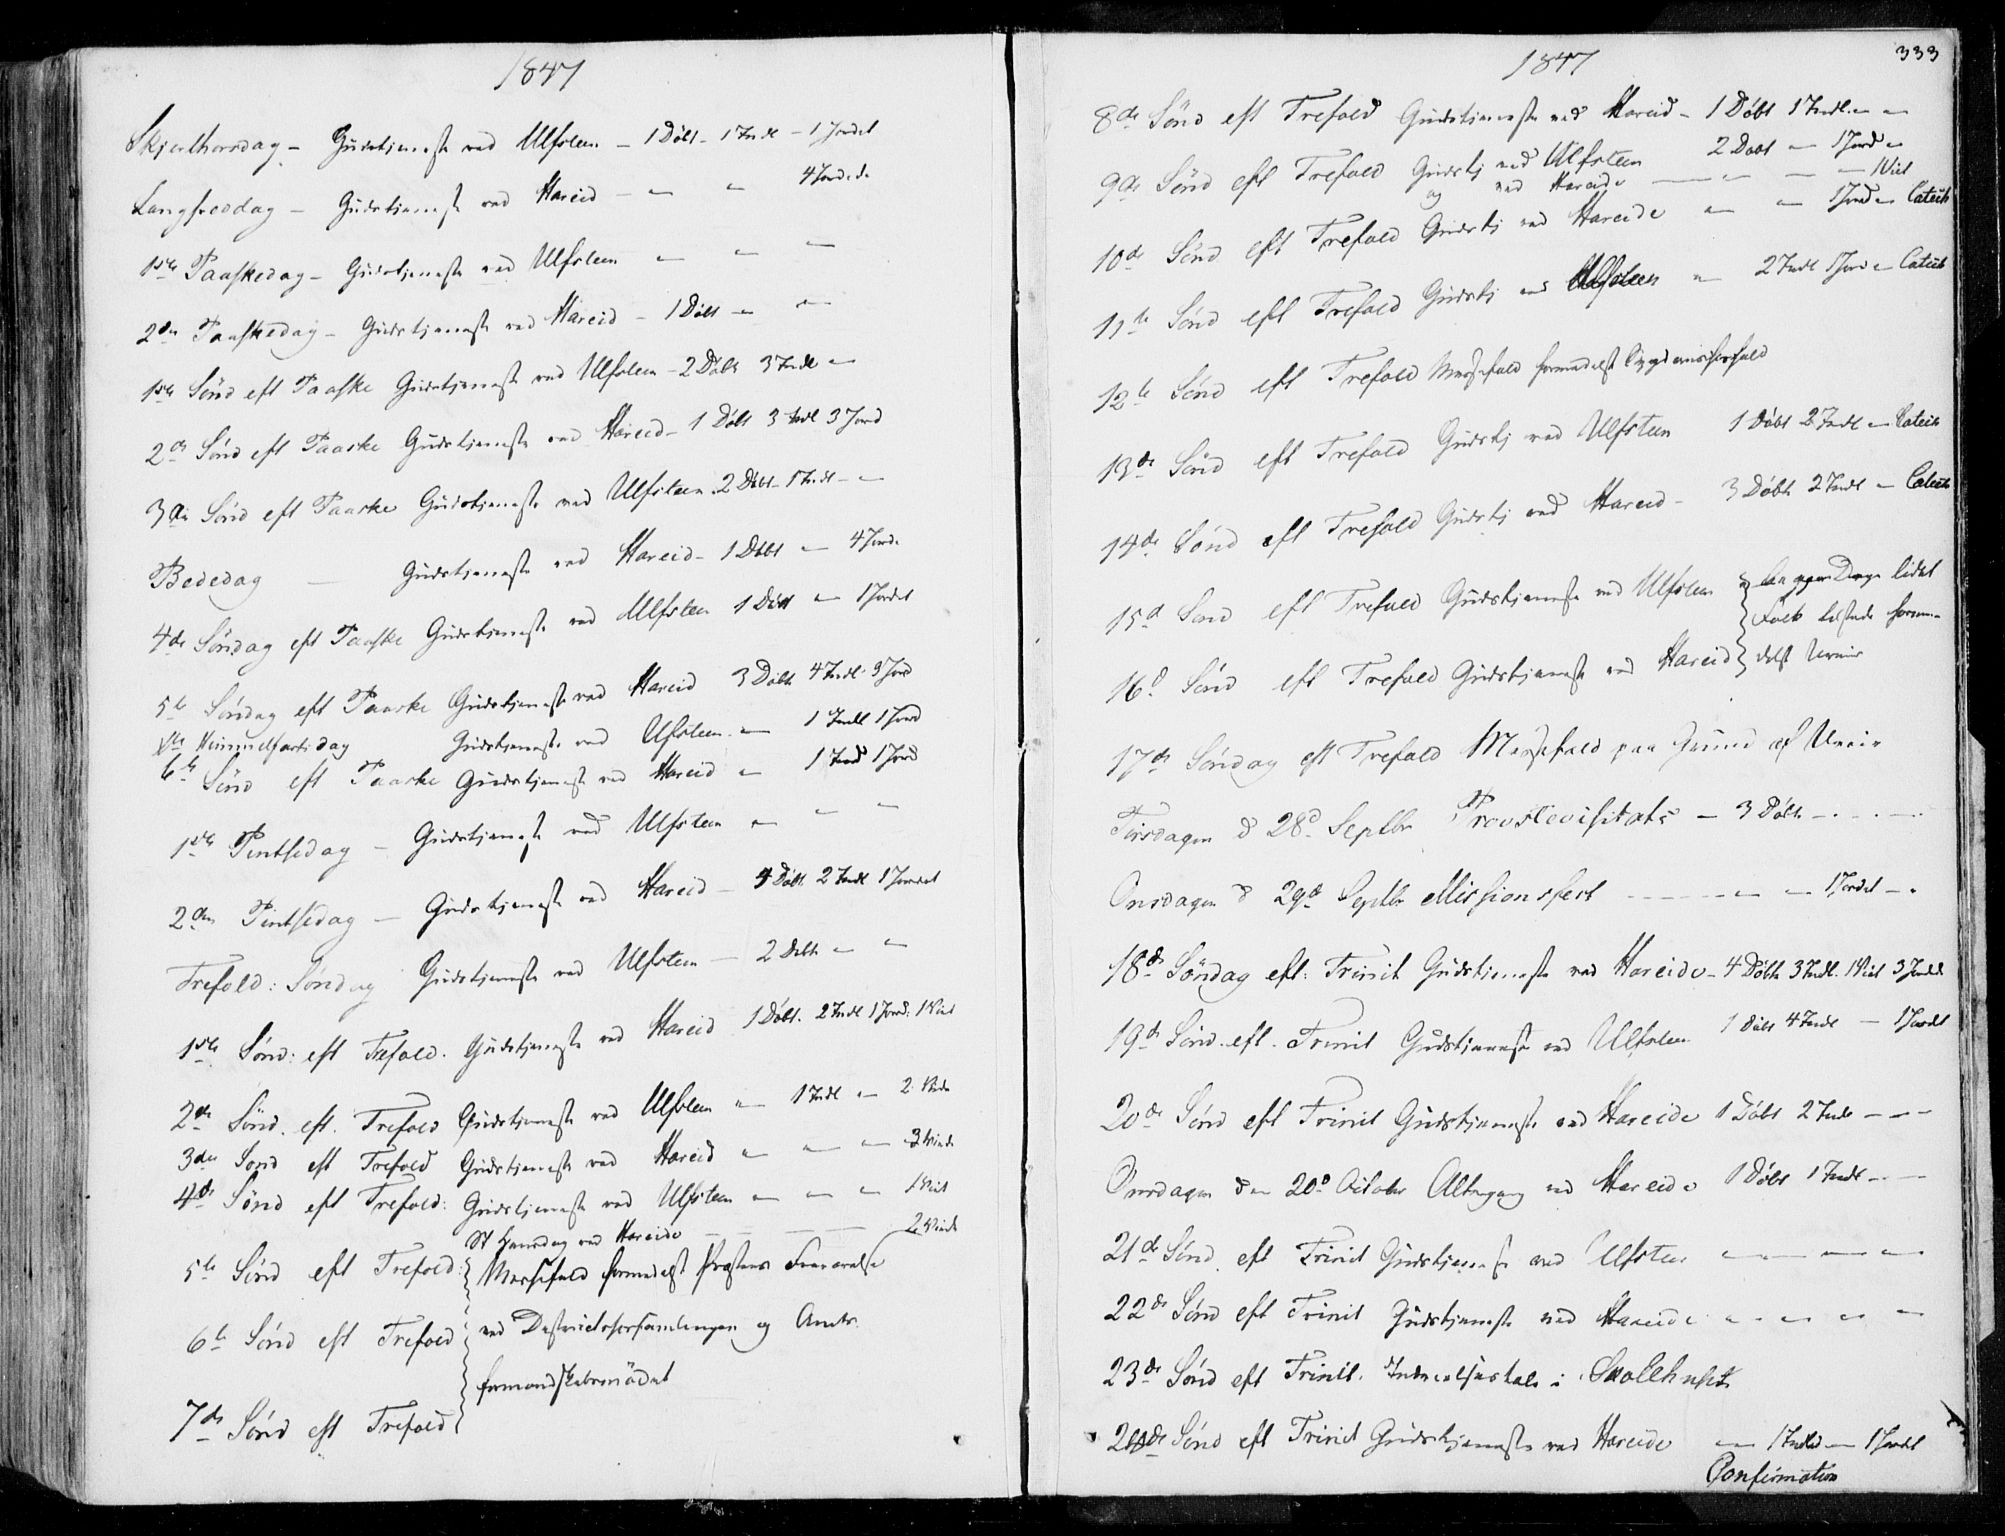 1847
Skjerthorsdag – Gudstjeneste ved Ulfsteen – 1 Døbt – 1 Indl – 1 Jordet
Langfredag – Gudstjeneste ved Hareid – " " 4 Jordede
1ste Paaskedag – Gudstjeneste ved Ulfsteen " " "
2den Paaskedag – Gudstjeneste ved Hareid – 1 Døbt " "
1ste Sönd eft Paaske Gudstjeneste ved Ulfsteen – 2 Døbt 3 Indl "
2den Sönd eft Paaske Gudstjeneste ved Hareid – 1 Døbt 3 Indl 3 Jord
3die Sönd eft Paaske Gudstjeneste ved Ulfsteen 2 Døbt – 1 Indl – "
Bededag – Gudstjeneste ved Hareid – 1 Døbt " 4 Jord.
4de Söndag eft Paaske Gudstjeneste ved Ulfsteen 1 Døbt " 1 Jordet
5te Söndag eft Paaske Gudstjeneste ved Hareid 3 Døbt 4 Indl. 3 Jord
Himmelfartsdag Gudstjeneste ved Ulfsteen " 1 Indl 1 Jord
6te Sönd eft Paaske Gudstjeneste ved Hareid " 1 Indl 1 Jord
1ste Pintsedag – Gudstjeneste ved Ulfsteen " " "
2den Pintsedag – Gudstjeneste ved Hareid – 4 Døbt 2 Indl 1 Jordet
Trefold: Söndag Gudstjeneste ved Ulfsteen – 2 Døbt " "
1ste Sönd: eft Trefold. Gudstjeneste ved Hareid 1 Døbt. 2 Indl 1 Jord. 1 Viet
2den Sönd. eft. Trefold Gudstjeneste ved Ulfsteen " 1 Indl " 2 Viede
3die Sönd eft Trefold Gudstjeneste ved Hareid " " " 3 Viede
4de Sönd eft Trefold: Gudstjeneste ved Ulfsteen " " " 1 Viet
St Hansdag ved Hareide – – – 2 Viede
5te Sönd eft Trefold: Messefald formedelst Præstens Fraværelse
6te Sönd eft Trefold ved Districtsforsamlingen og Amts-
formandskabsmödet
7de Sönd eft Trefold
1847
333
8de Sönd eft Trefold Gudstjeneste ved Hareid – 1 Døbt 1 Indl. " "
9de Sönd eft Trefold Gudstj ved Ulfsteen 2 Døbt " 1 Jord "
og ved Hareide – " – – 1 Viet
10de Sönd eft Trefold Gudstj ved Hareide " " 1 Jord " Catech
11te Sönd eft Trefold Gudstj ved Ulfsteen " 2 Indl 1 Jord " Catech
12te Sönd eft Trefold Messefald formedelst
13de Sönd eft Trefold Gudstj ved Ulfsteen 1 Døbt 2 Indl " Catech
14de Sönd eft Trefold Gudstj ved Hareid – 3 Døbt 2 Indl " Catech
15d Sönd eft Trefold Gudstjeneste ved Ulfsteen Dage lidet
Folk tilstede forme-
16d Sönd eft Trefold Gudstjeneste ved Hareid delst Uveir
17de Söndag eft Trefold Messefald paa Grund af Uveir
Tirsdagen d 28d Septbr Provstevisitats – 3 Døbte – . . –
Onsdagen d 29d Septbr Missionsfest – – – " " 1 Jordet – .
18de Söndag eft: Trinit Gudstjeneste ved Hareide – 4 Døbte 3 Indl. 1 Viet 3 Jordede
19de Sönd. eft. Trinit Gudstjeneste ved Ulfsteen 1 Døbt 4 Indl – 1 Jordet
20de Sönd eft Trinit Gudstjeneste ved Hareide 1 Døbt 2 Indl – – –
Onsdagen den 20d October Altergang ved Hareide 1 Døbt 1 Indl – –
21de Sönd. eft Trinit Gudstjeneste ved Ulfsteen " " " "
22de Sönd eft Trinit Gudstjeneste ved Hareide " " " "
23de Sönd eft Trinit. Indvielsestale i Skolehuset
24de Sönd eft Trinit Gudstjeneste ved Hareide " 1 Indled " 1 Jordet
Confirmation